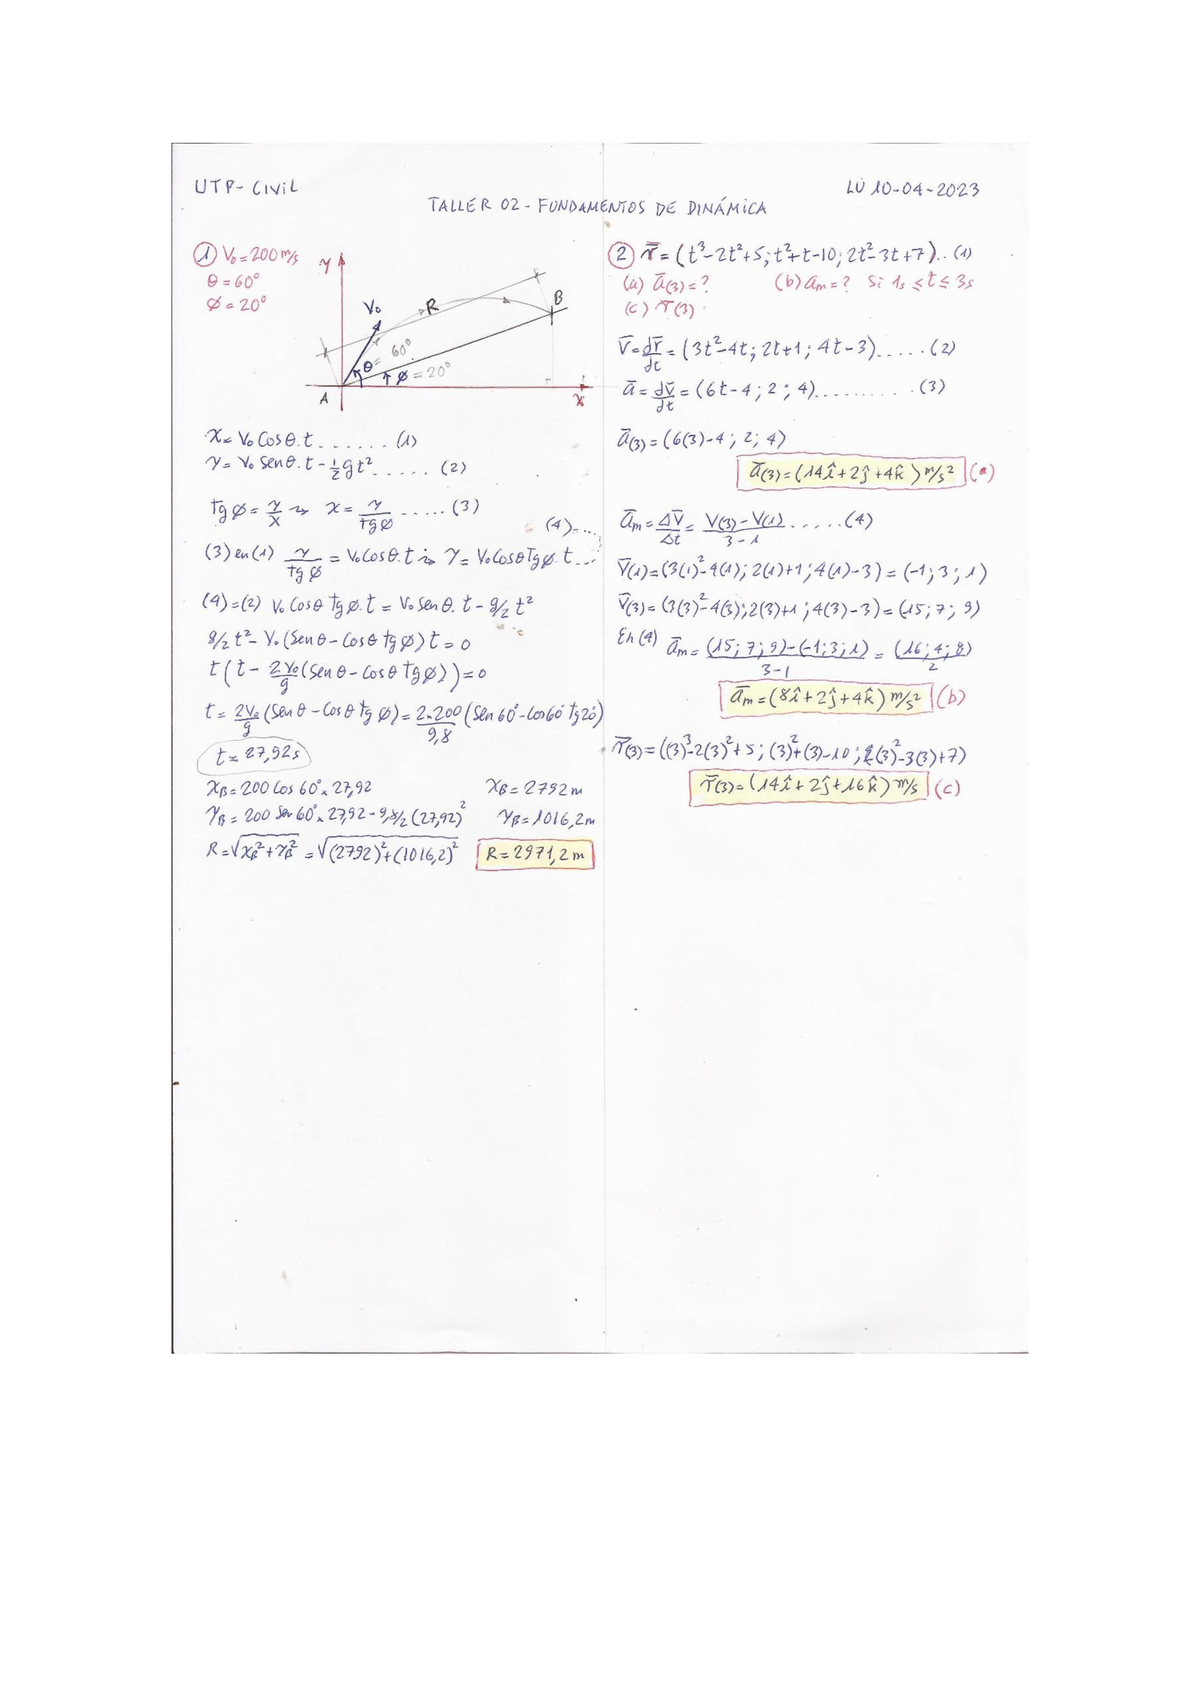 UTP- CIVIL
LU 10-04-2023
TALLER 02 - FUNDAMENTOS DE DINÁMICA
① V₀ = 200 m/s
θ = 60°
ϕ = 20°
Y
V₀
R
B
θ = 60°
ϕ = 20°
A
X
X = V₀ Cos θ. t ....... (1)
Y = V₀ Sen θ. t - 1/2 g t² ..... (2)
Tg ϕ = Y/X ⇝ X = Y/Tg ϕ ..... (3)
(4)-...
(3) en (1) Y/Tg ϕ = V₀ Cos θ. t ⇝ Y = V₀ Cos θ Tg ϕ. t ...
(4) = (2) V₀ Cos θ Tg ϕ. t = V₀ Sen θ. t - g/2 t²
g/2 t² - V₀ (Sen θ - Cos θ Tg ϕ) t = 0
t (t - 2V₀/g (Sen θ - Cos θ Tg ϕ)) = 0
t = 2V₀/g (Sen θ - Cos θ Tg ϕ) = 2×200/9,8 (Sen 60° - Cos 60° Tg 20°)
t = 27,92 s
X_B = 200 Cos 60° × 27,92 X_B = 2792 m
Y_B = 200 Sen 60° × 27,92 - 9,8/2 (27,92)² Y_B = 1016,2 m
R = √(X_B² + Y_B²) = √((2792)² + (1016,2)²) R = 2971,2 m
② r̄ = (t³ - 2t² + 5; t² + t - 10; 2t² - 3t + 7).. (1)
(a) ā(3) = ? (b) a_m = ? Si 1s ≤ t ≤ 3s
(c) r̄(3)
V̄ = dr̄/dt = (3t² - 4t; 2t + 1; 4t - 3) ..... (2)
ā = dv̄/dt = (6t - 4; 2; 4) .......... (3)
ā(3) = (6(3) - 4; 2; 4)
ā(3) = (14î + 2ĵ + 4k̂) m/s² (a)
ā_m = ΔV̄/Δt = V(3) - V(1)/3 - 1 ..... (4)
V̄(1) = (3(1)² - 4(1); 2(1) + 1; 4(1) - 3) = (-1; 3; 1)
V̄(3) = (3(3)² - 4(3); 2(3) + 1; 4(3) - 3) = (15; 7; 9)
En (4) ā_m = (15; 7; 9) - (-1; 3; 1)/3 - 1 = (16; 4; 8)/2
ā_m = (8î + 2ĵ + 4k̂) m/s² (b)
r̄(3) = ((3)³ - 2(3)² + 5; (3)² + (3) - 10; 2(3)² - 3(3) + 7)
r̄(3) = (14î + 2ĵ + 16k̂) m/s (c)